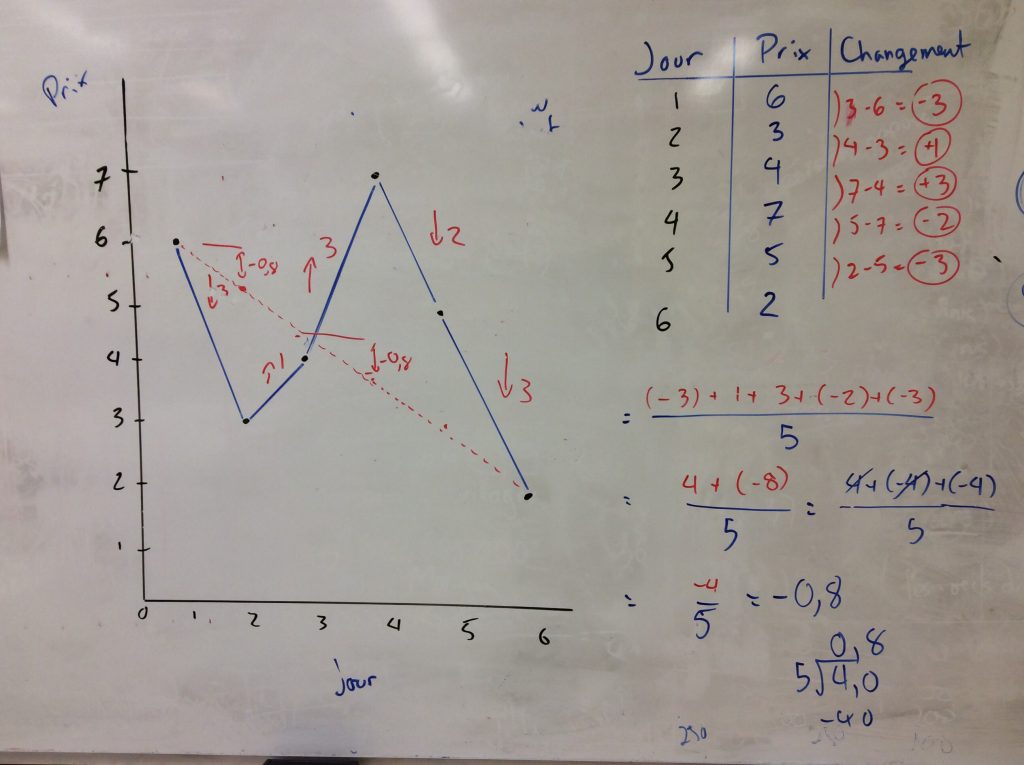 Prix
7
6
5
4
3
2
1
0 1 2 3 4 5 6
Jour
-0,8
↓3
↑1
↑3
-0,8
↓2
↓3
Jour Prix Changement
1 6 )3-6 = -3
2 3 )4-3 = +1
3 4 )7-4 = +3
4 7 )5-7 = -2
5 5 )2-5 = -3
6 2
= (-3) + 1 + 3 + (-2) + (-3)
5
= 4 + (-8) = 4 + (-4) + (-4)
5 5
= -4 = -0,8
5
0,8
5 4,0
-40